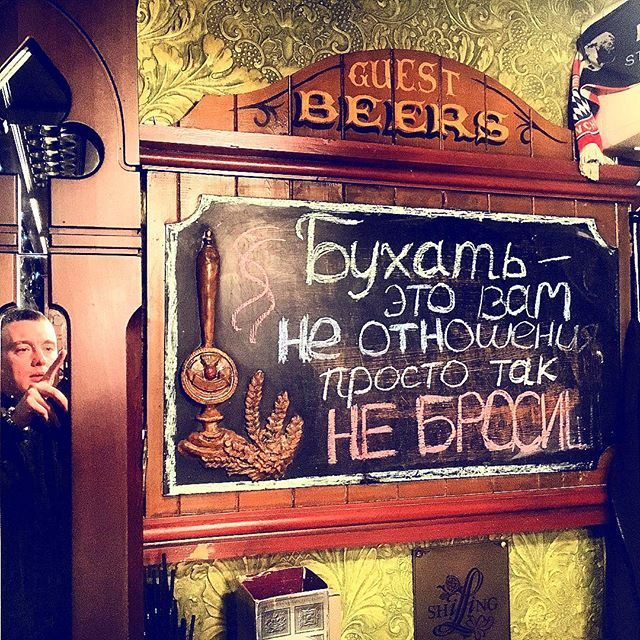 GUEST
BEERS
Бухать –
это вам
не отношения,
просто так
НЕ БРОСИШ
SHILLING